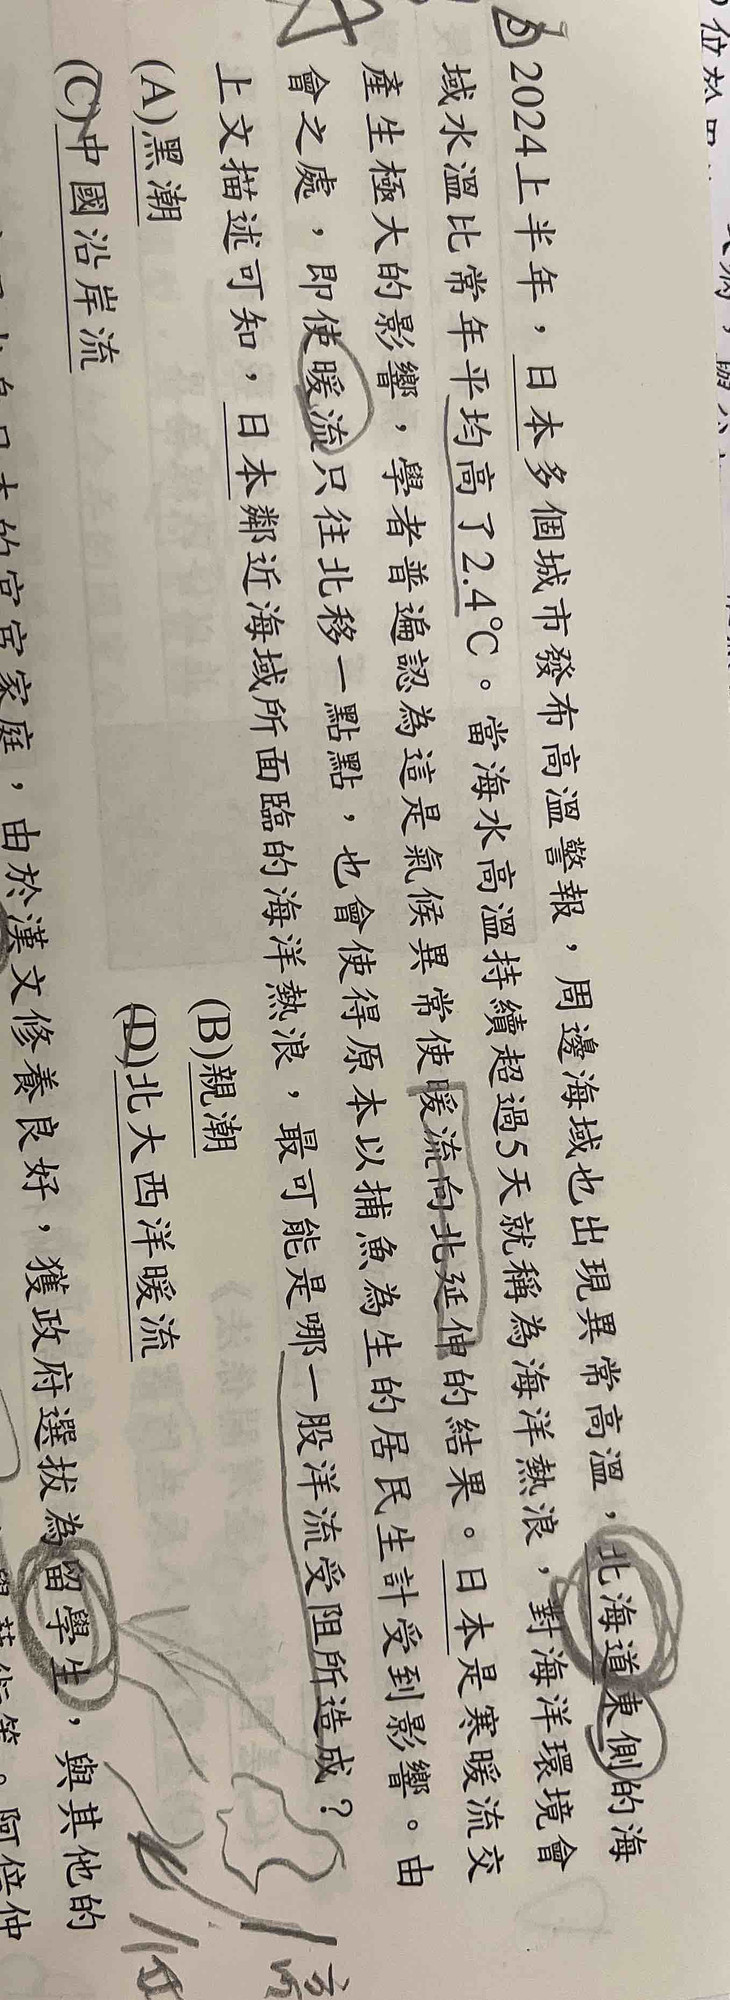 2024上半年，日本多個城市發布高溫警報，周邊海域也出現異常高溫，北海道東側的海
域水溫比常年平均高了2.4℃。當海水高溫持續超過5天就稱為海洋熱浪，對海洋環境會
產生極大的影響，學者普遍認為這是氣候異常使暖流向北延伸的結果。日本是寒暖流交
會之處，即使暖流只往北移一點點，也會使得原本以捕魚為生的居民生計受到影響。由
上文描述可知，日本鄰近海域所面臨的海洋熱浪，最可能是哪一股洋流受阻所造成？
(A)黑潮 (B)親潮
(C)中國沿岸流 (D)北大西洋暖流
的官宦家庭，由於漢文修養良好，獲政府選拔為留學生，與其他的
阿倍仲